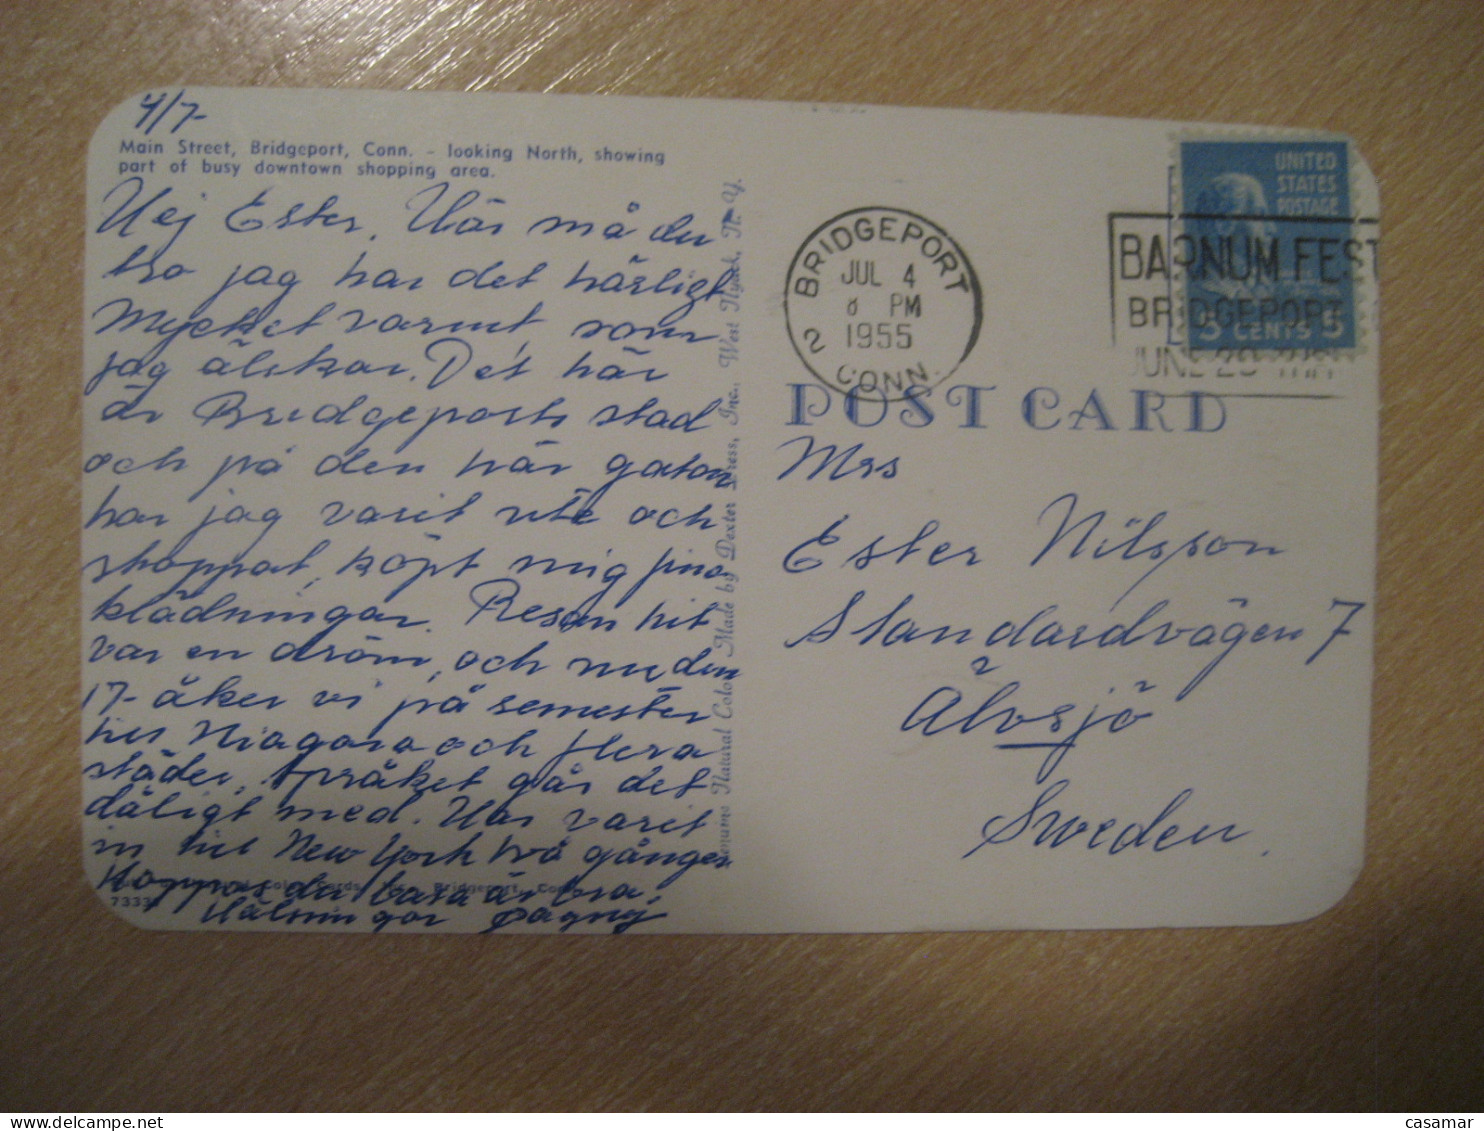 4/7-
Main Street, Bridgeport, Conn. - looking North, showing
part of busy downtown shopping area.
Hej Ester. Här må du
tro jag har det härligt
Mycket varmt, som
jag älskar. Det här
är Bridgeports stad
och på den här gatan
har jag varit ute och
shoppat, köpt mig fina
klädningar. Resan hit
var en dröm, och nu den
17- åker vi på semester
till Niagara och flera
städer. Språket går det
dåligt med. Har varit
in till New York två gånger
Hoppas du bara är bra.
Hälsningar Dagny
7333
Natural Color Made by Dexter Press, Inc., West Nyack, N. Y.
BRIDGEPORT
JUL 4
8 PM
1955
2 CONN.
BARNUM FEST
BRIDGEPORT
JUNE 29
UNITED
STATES
POSTAGE
5 CENTS 5
POST CARD
Mrs
Ester Nilsson
Standardvägen 7
Älvsjö
Sweden.
casamar